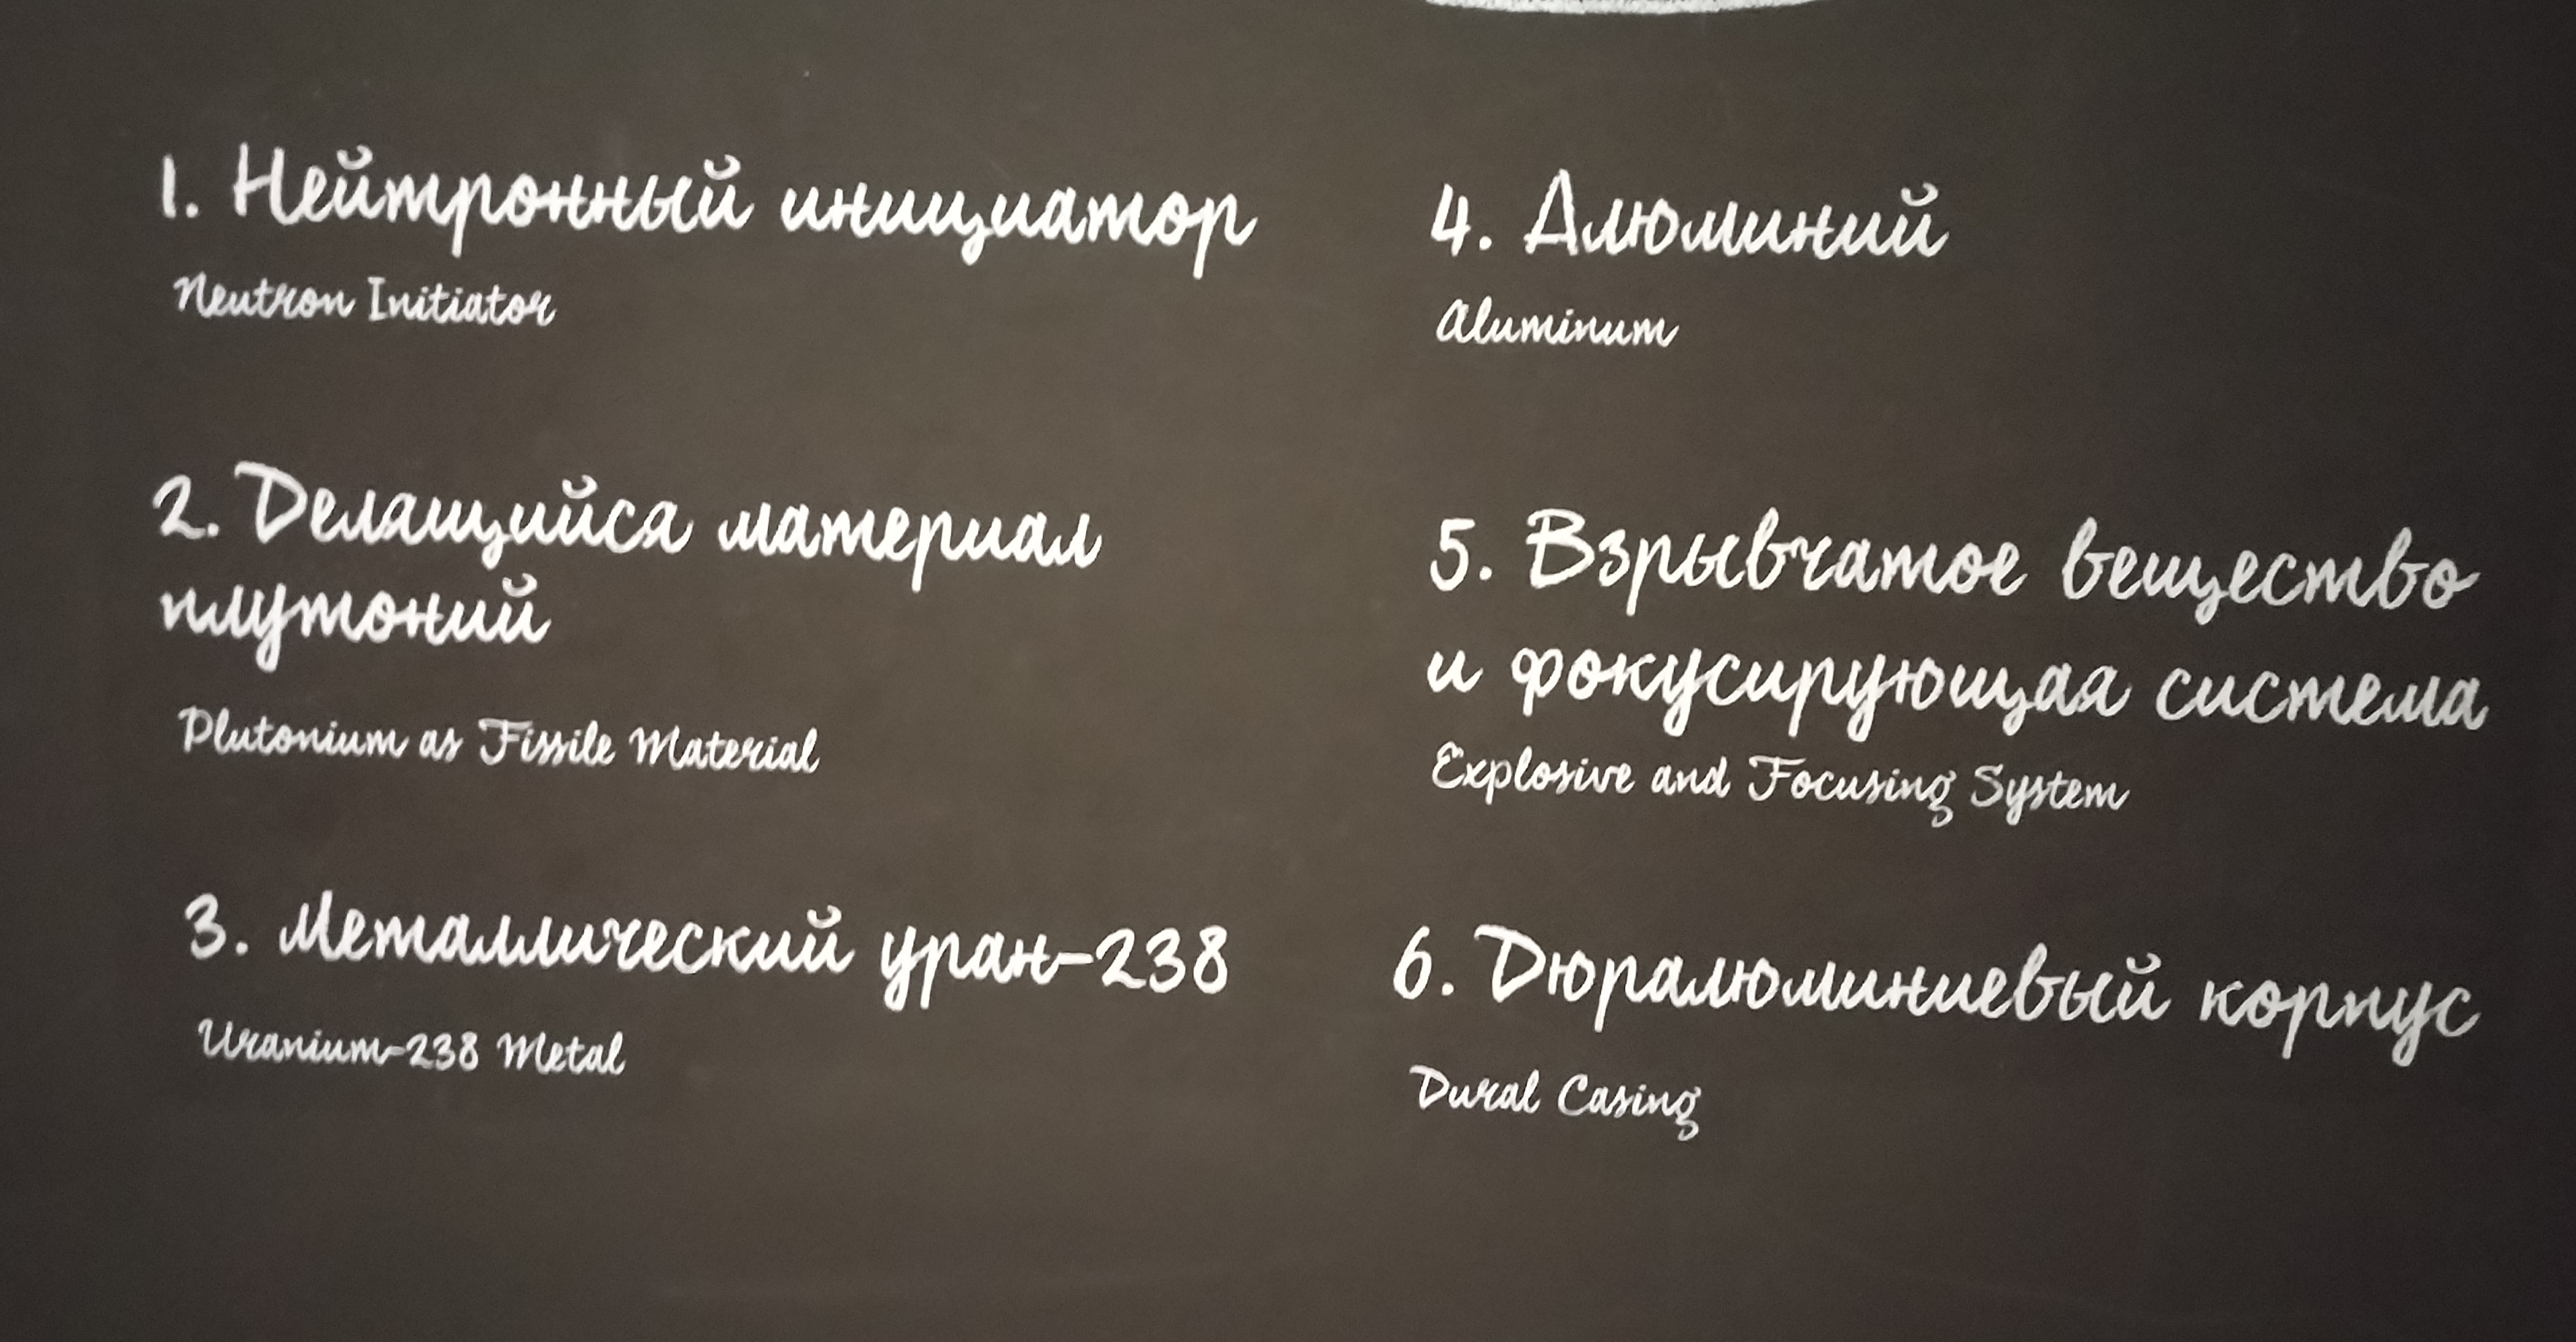 1. Нейтронный инициатор
Neutron Initiator
2. Делящийся материал
плутоний
Plutonium as Fissile Material
3. Металлический уран-238
Uranium-238 Metal
4. Алюминий
Aluminum
5. Взрывчатое вещество
и фокусирующая система
Explosive and Focusing System
6. Дюралюминиевый корпус
Dural Casing